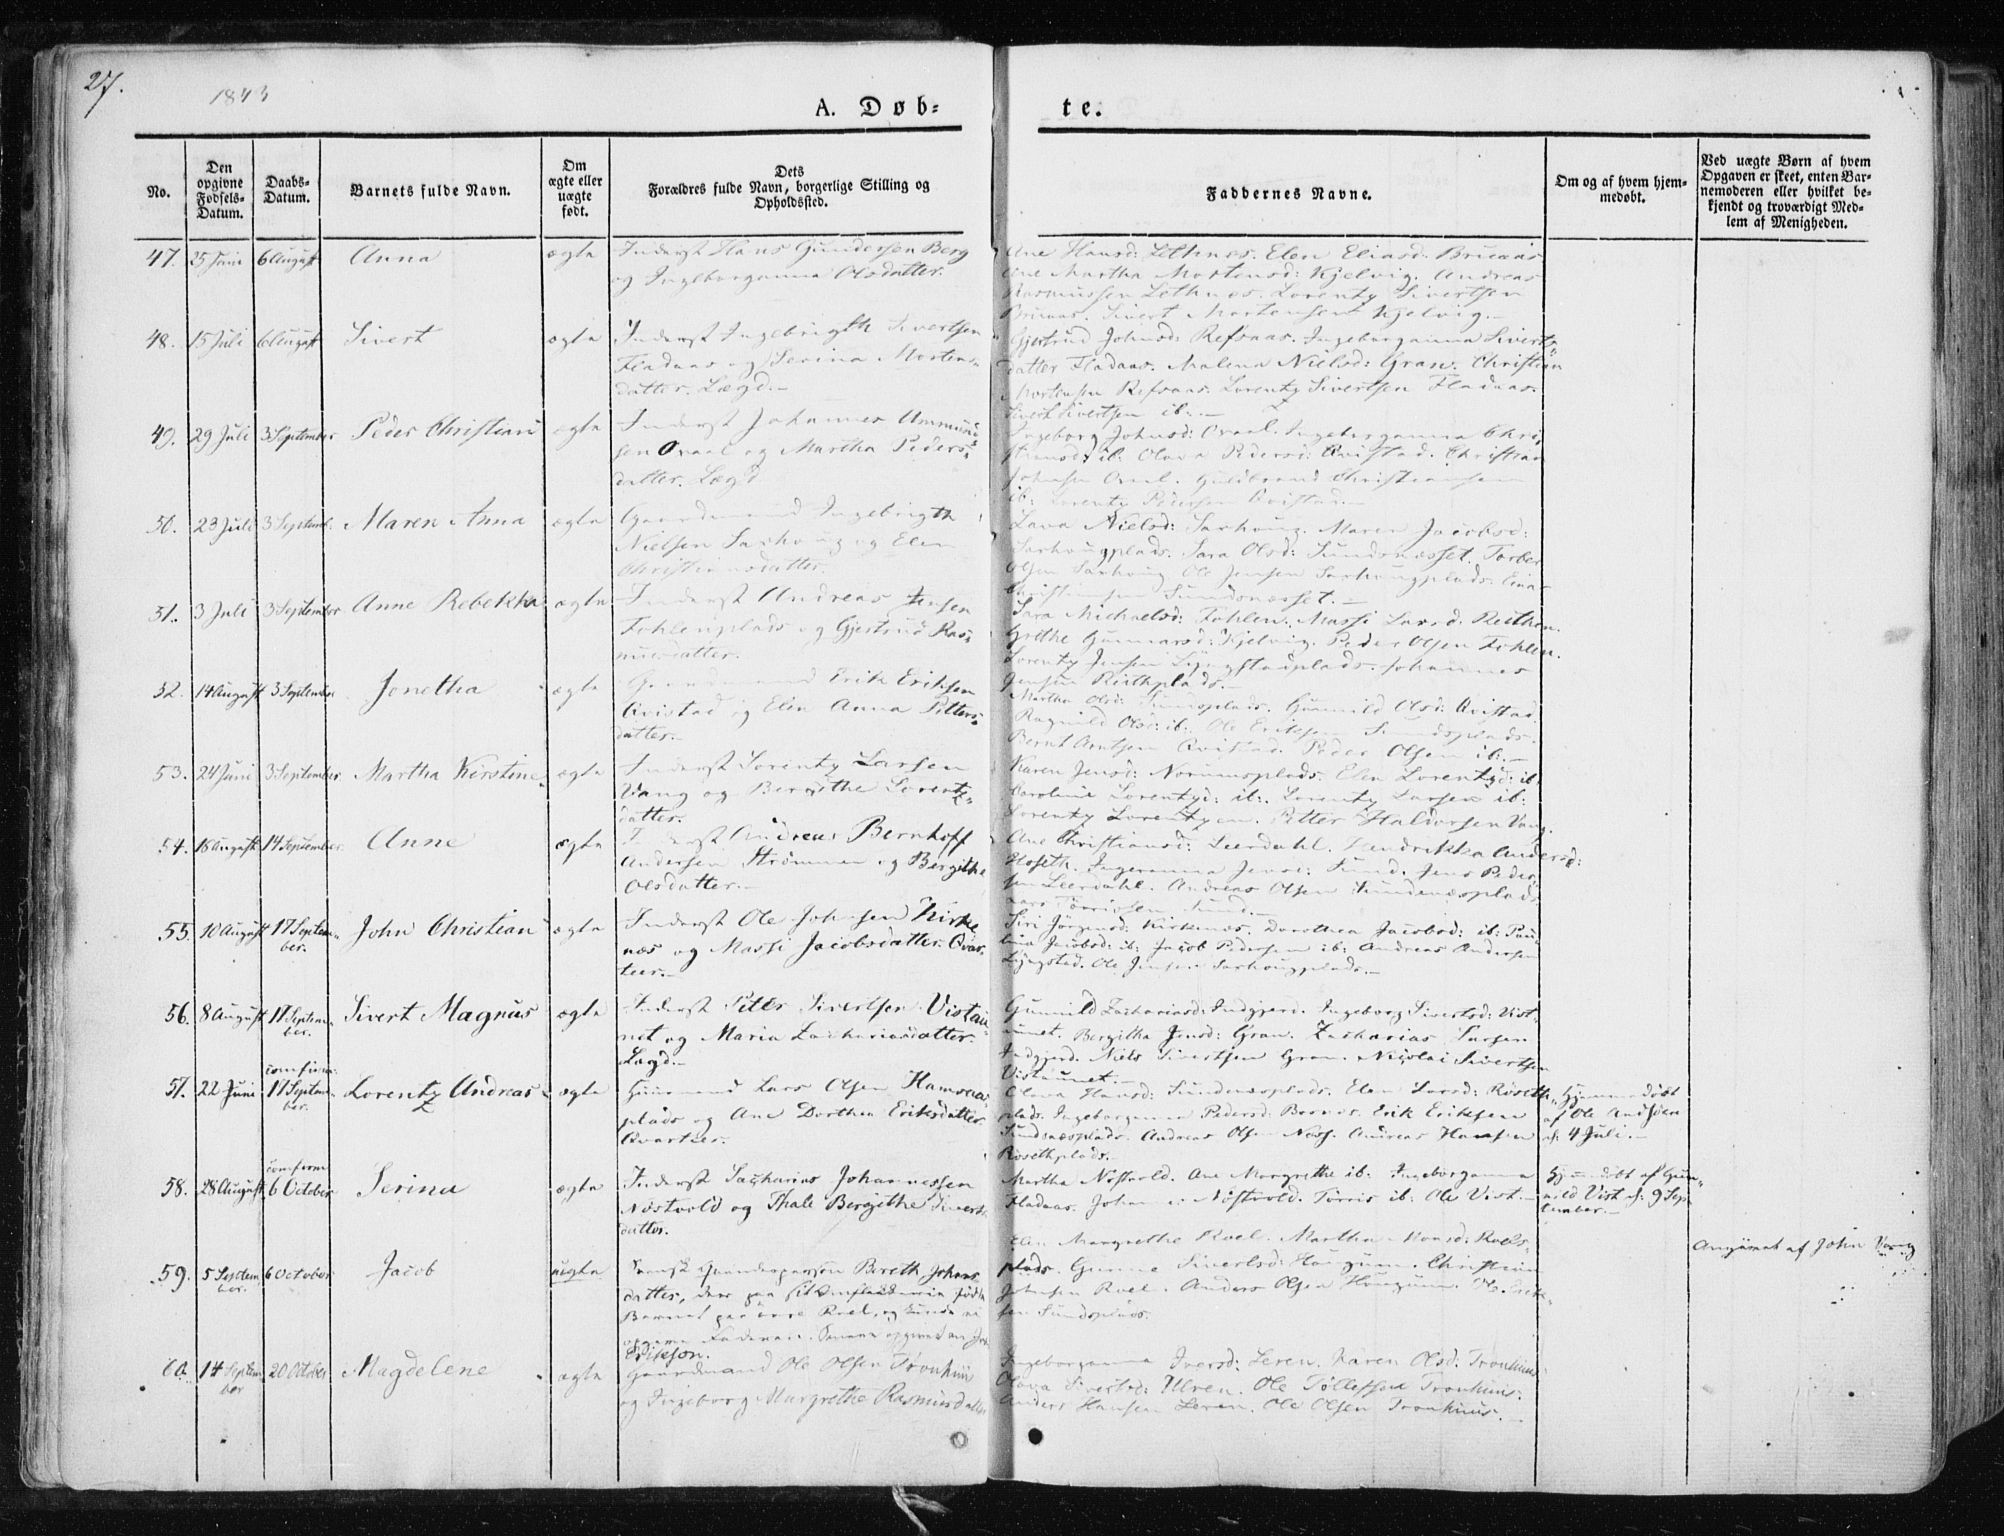 27.
1843
A. Døb-
te.
No.
Den opgivne Fødsels-Datum.
Daabs-Datum.
Barnets fulde Navn.
Om ægte eller uægte født.
Dets
Forældres fulde Navn, borgerlige Stilling og
Opholdssted.
Faddernes Navne.
Om og af hvem hjem-
medøbt.
Ved uægte Børn af hvem
Opgaven er skeet, enten Bar-
nemoderen eller hvilket be-
kjendt og troværdigt Med-
lem af Menigheden.
47. 25 Juni 6 August Anna ægte
Inderst Hans Gundersen Berg
og Ingeborganna Olsdatter.
Ane Hansd: Lethnes. Elen Eliasd: Bruaas
Ane Martha Mortensd: Kjelvig. Andreas
Rasmussen Lethnes. Lorentz Sivertsen
Bruaas. Sivert Mortensen Kjelvig.
48. 15 Juli 6 August Sivert ægte
Inderst Ingebrigth Sivertsen
Fladaas og Serina Morten-
datter. Lægd.
Gjertrud Johnsd: Refsaas. Ingeborganna Siverts-
datter Fladaas. Malena Nielsd: Gran. Christian
Mortensen Refsaas. Lorentz Sivertsen Fladaas.
Sivert Sivertsen ib:
49. 29 Juli 3 September Peder Christian ægte
Inderst Johannes Ammund-
sen Oraal og Martha Peders-
datter. Lægd
Ingeborg Johnsd: Oraal. Ingeborganna Chri-
stiansd: ib: Olava Pedersd: Qvistad. Christian
Johnsen Oraal. Guldbrand Christiansen
ib: Lorentz Pedersen Qvistad.
50. 23 Juli 3 Septemb. Maren Anna ægte
Gaardmand Ingebrigth
Nielsen Saxhoug og Elen
Christiansdatter.
Lava Nielsd: Saxhoug. Maren Jacobsd:
Saxhougplads. Sara Olsd: Sundsnæsset. Torber
Olsen Saxhoug Ole Jensen Saxhougplads.
Christiansen Sundsnæsset.
51. 3 Juli 3 September Anne Rebekka ægte
Inderst Andreas Jensen
Fohlenplads og Gjertrud Ras-
musdatter.
Sara Michaelsd: Fohlen. Massi Larsd: Reithen.
Grethe Gunnarsd: Kjelvig. Peder Olsen Fohlen.
Lorentz Jensen Ljungstadplads. Johannes
Jensen Reithplads.
52. 14 August 3 September Jonetha ægte
Gaardmand Erik Eriksen
Qvistad og Elen Anna Petters-
datter.
Martha Olsd: Sundsplads. Gunnild Olsd: Qvistad.
Ragnild Olsd: ib: Ole Eriksen Sundsplads.
Bernt Arntsen Qvistad. Peder Olsen ib:
53. 24 Juni 3 September Martha Kirstine ægte
Inderst Lorentz Larsen
Vang og Bergithe Lorentz-
datter.
Karen Jensd: Norumsplads. Elen Lorentzd: ib:
Caroline Lorentzd: ib: Lorentz Larsen ib:
Lorentz Lorentzen. Petter Haldorsen Vang.
54. 18 August 14 September Anne ægte
Inderst Andreas Bernhoff
Andersen Strømmen og Bergithe
Olsdatter.
Ane Christiansd: Leerdahl. Hendrikka Andersd:
Hoseth. Ingeranna Jensd: Sund. Jens Peder-
sen Leerdahl. Andreas Olsen Sundnæsplads
Sund.
55. 10 August 17 Septem-
ber. John Christian ægte
Inderst Ole Johnsen Kirke
næs og Massi Jacobsdatter. Qvar-
teer.
Siri Jörgensd: Kirkenæs. Dorothea Jacobsd: ib: Pau-
lina Jacobsd: ib: Jacob Pedersen ib: Andreas Andersen
Ljungstad. Ole Jensen Saxhougplads.
56. 8 August 17 Septem-
ber. Sivert Magnus ægte
Inderst Peter Sivertsen Vistau-
net og Maria Zachariasdatter.
Lægd.
Gunnild Zachariasd: Indgjerd. Ingeborg Sivertsd: Vist-
aunet. Bergitha Jensd: Gran. Zacharias Larsen
Indgjerd. Niels Sivertsen Gran. Nicolai Sivertsen
Vistaunet.
57. 22 Juni comfirm:
17 Septem-
ber. Lorentz Andreas ægte
Huusmand Lars Olsen Hamsaas-
plads og Ane Dorthea Eriksdatter
Qvarteer.
Olava Hansd: Sundnæsplads. Elen Larsd: Röseth-
plads. Ingeborganna Pedersd: Barnes. Erik Eriksen
Sundnæsplads. Andreas Olsen Næss. Andreas Hansen
Rösethplads.
Hjemmedöbt
af Ole Andsden
d: 4 Juli.
58. 28 August comfirm:
6 October Serina ægte
Inderst Zacharias Johannessen
Nöstvold og Thale Bergithe Siverts-
datter.
Martha Nöstvold. Ane Margrethe ib: Ingeborganna
Fladaas. Johan Nöstvold. Törris ib: Ole Vist.
Hjemmedöbt af Gun-
nild Vist d: 9 Sep
tember.
59. 5 Septem
ber. 6 October Jacob uægte
Svensk Qvindesperson Bereth Johans
datter, der paa födte
Barnet paa övre Roel, og kunde ei
opgive Faderen. Senere opgivet
Erikson.
Elen Margrethe Roel. Martha Monsd: Roels-
plads. Gunne Sivertsd: Haugum. Christian
Johnsen Roel. Anders Olsen Haugum. Ole Erik-
sen Sundsplads.
Angivet af John Vang
60. 14 Septem
ber 20 October Magdelene ægte
Gaardmand Ole Olsen Tronhuus
og Ingeborg Margrethe Rasmusdatter
Ingeborganna Iversd: Leren. Karen Olsd: Tronhuus
Olava Sivertsd: Ulven. Ole Tøllefsen Tronhuus.
Anders Hansen Leren. Ole Olsen Tronhuus.